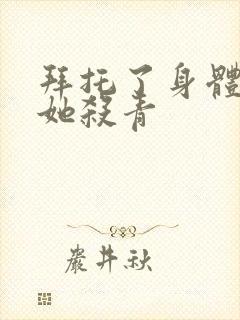 拜托了身體
她殺青
嚴井秋